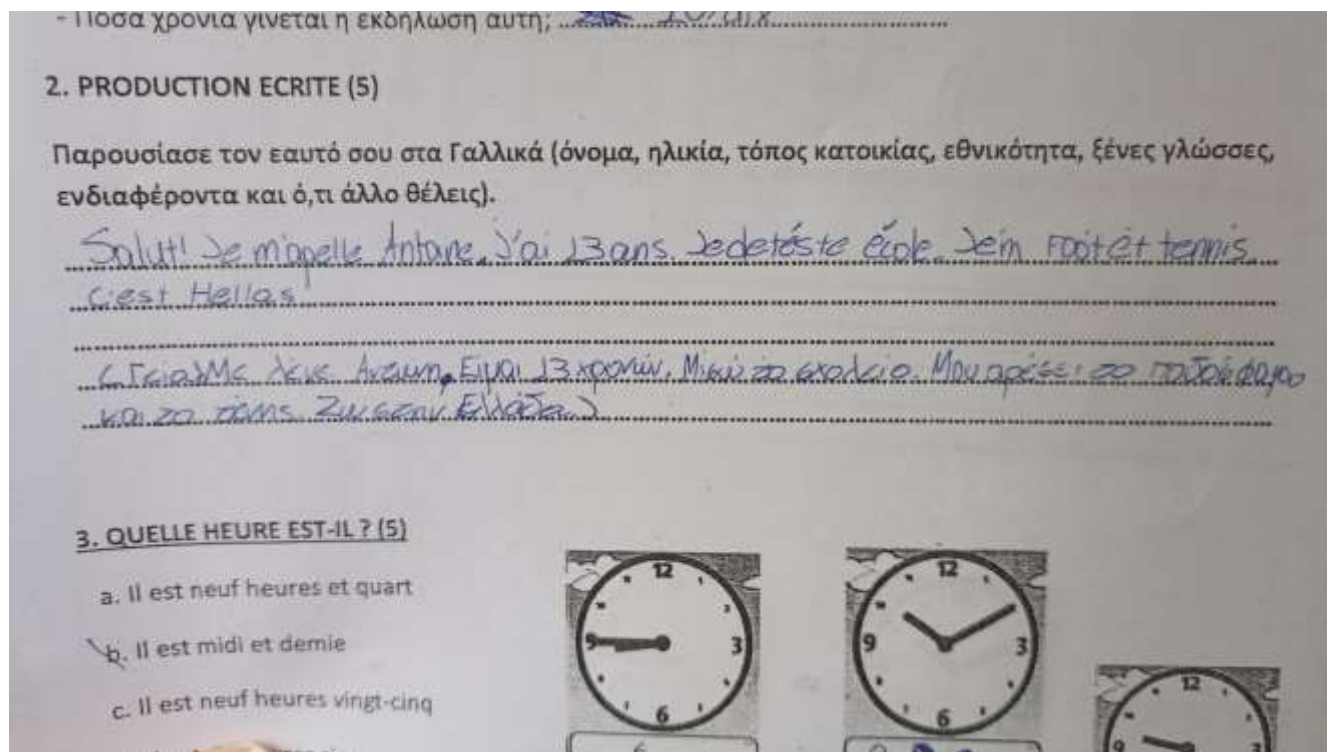 - Πόσα χρόνια γίνεται η εκδήλωση αυτή; 10/dix
2. PRODUCTION ECRITE (5)
Παρουσίασε τον εαυτό σου στα Γαλλικά (όνομα, ηλικία, τόπος κατοικίας, εθνικότητα, ξένες γλώσσες,
ενδιαφέροντα και ό,τι άλλο θέλεις).
Salut! Je m'apelle Antone. J'ai 13 ans. Je detéste école. Jem Foot et tennis.
C'est Hellas
(Γεια! Με λένε Αντώνη, Είμαι 13 χρονών. Μισώ το σχολείο. Μου αρέσει το ποδόσφαιρο
και το τένις. Ζω στην Ελλάδα)
3. QUELLE HEURE EST-IL ? (5)
a. Il est neuf heures et quart
b. Il est midi et demie
c. Il est neuf heures vingt-cinq
12 3 6 9
12 3 6 9
12 3 9